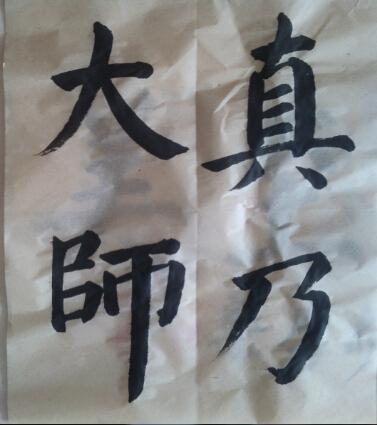 真乃
大師